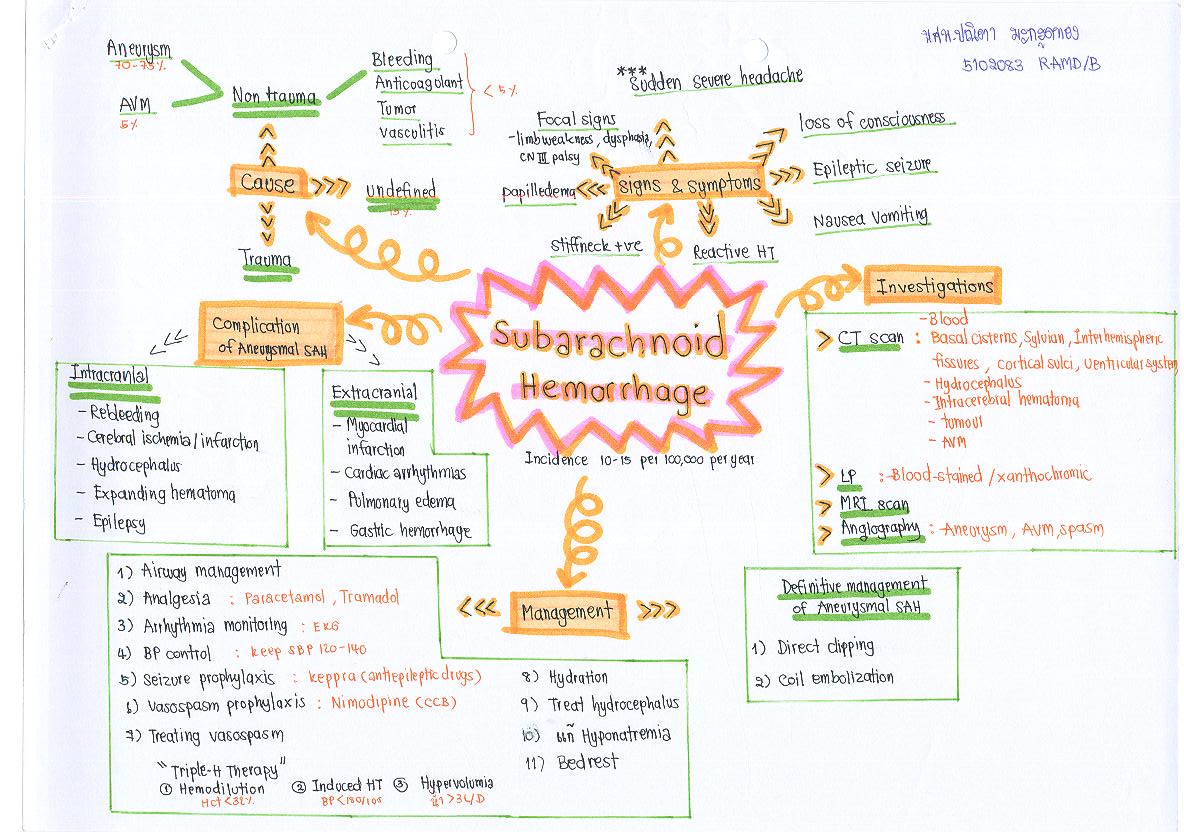 5102083 RAMD/B
Aneurysm
70-75%
AVM
5%
Non trauma
Bleeding
Anticoagulant
Tumor
vasculitis
< 5%
Cause
undefined
15%
Trauma
***
Sudden severe headache
Focal signs
-limb weakness, dysphasia,
CN III palsy
papilledema
Signs & symptoms
loss of consciousness
Epileptic seizure
Nausea Vomiting
Stiffneck +ve
Reactive HT
Subarachnoid
Hemorrhage
Incidence 10-15 per 100,000 per year
Investigations
-Blood
CT scan : Basal cisterns, Sylvian, Interhemispheric
fissures, cortical sulci, ventricular system
- Hydrocephalus
- Intracerebral hematoma
- tumour
- AVM
LP :-Blood-stained /xanthochromic
MRI scan
Angiography : -Aneurysm, AVM, spasm
Complication
of Aneurysmal SAH
Intracranial
- Rebleeding
- Cerebral ischemia/infarction
- Hydrocephalus
- Expanding hematoma
- Epilepsy
Extracranial
- Myocardial
infarction
- Cardiac arrhythmias
- Pulmonary edema
- Gastric hemorrhage
Management
1) Airway management
2) Analgesia : Paracetamol, Tramadol
3) Arrhythmia monitoring : EKG
4) BP control : keep SBP 120-140
5) Seizure prophylaxis : keppra (antiepileptic drugs)
6) Vasospasm prophylaxis : Nimodipine (CCB)
7) Treating vasospasm
"Triple-H Therapy"
① Hemodilution ② Induced HT ③ Hypervolumia
Hct <32% น้ำ >3L/D
8) Hydration
9) Treat hydrocephalus
10) แก้ Hyponatremia
11) Bedrest
Definitive management
of Aneurysmal SAH
1) Direct clipping
2) Coil embolization